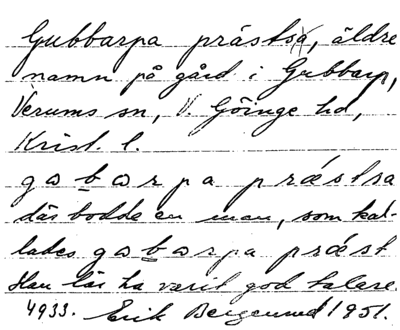 Gubbarpa prästsa, äldre
namn på gård i Gubbarp,
Verums sn, V. Göinge hd,
Krist. l.
gabarpa præ´stsa
där bodde en man, som kal-
lades gabarpa præ´st
Han lär ha varit god talare.
4933. Erik Bergend 1951.